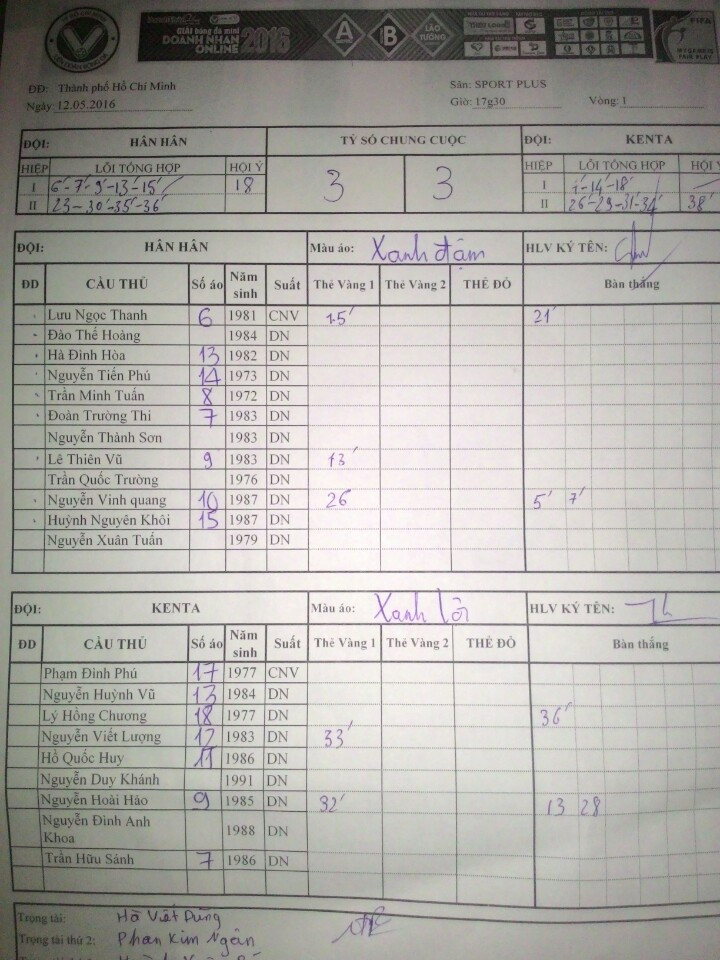 GIẢI bóng đá mini
DOANH NHÂN
ONLINE 2016
A B LÃO TƯỚNG
FIFA
MY GAME IS FAIR PLAY
ĐĐ: Thành phố Hồ Chí Minh Sân: SPORT PLUS
Ngày: 12.05.2016 Giờ: 17g30 Vòng: 1
ĐỘI: HÂN HÂN TỶ SỐ CHUNG CUỘC ĐỘI: KENTA
HIỆP LỖI TỔNG HỢP HỘI Ý 3 3 HIỆP LỖI TỔNG HỢP HỘI Ý
I 6'-7'-9'-13'-15' 18 I 1'-14'-18'
II 23-30'-35'-36' II 26'-29-31'-34' 38'
ĐỘI: HÂN HÂN Màu áo: Xanh đậm HLV KÝ TÊN:
ĐD CẦU THỦ Số áo Năm sinh Suất Thẻ Vàng 1 Thẻ Vàng 2 THẺ ĐỎ Bàn thắng
Lưu Ngọc Thanh 6 1981 CNV 15' 21'
Đào Thế Hoàng 1984 DN
Hà Đình Hòa 13 1982 DN
Nguyễn Tiến Phú 14 1973 DN
Trần Minh Tuấn 8 1972 DN
Đoàn Trường Thi 7 1983 DN
Nguyễn Thành Sơn 1983 DN
Lê Thiên Vũ 9 1983 DN 13'
Trần Quốc Trường 1976 DN
Nguyễn Vinh quang 10 1987 DN 26' 5' 7'
Huỳnh Nguyên Khôi 15 1987 DN
Nguyễn Xuân Tuấn 1979 DN
ĐỘI: KENTA Màu áo: Xanh lơ HLV KÝ TÊN:
ĐD CẦU THỦ Số áo Năm sinh Suất Thẻ Vàng 1 Thẻ Vàng 2 THẺ ĐỎ Bàn thắng
Phạm Đình Phú 17 1977 CNV
Nguyễn Huỳnh Vũ 13 1984 DN
Lý Hồng Chương 18 1977 DN 36'
Nguyễn Viết Lượng 12 1983 DN 33'
Hồ Quốc Huy 11 1986 DN
Nguyễn Duy Khánh 1991 DN
Nguyễn Hoài Hảo 9 1985 DN 32' 13 28
Nguyễn Đình Anh Khoa 1988 DN
Trần Hữu Sánh 7 1986 DN
Trọng tài: Hà Viết Dũng
Trọng tài thứ 2: Phan Kim Ngân